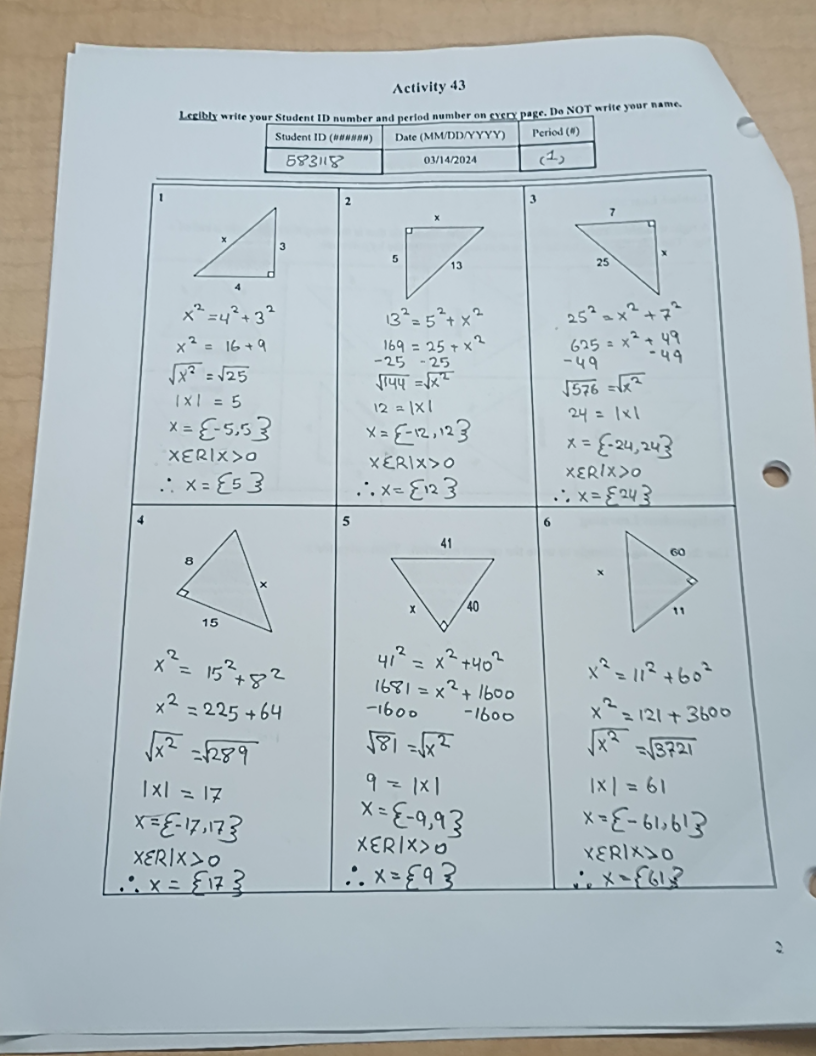 Activity 43
Legibly write your Student ID number and period number on every page. Do NOT write your name.
Student ID (######) Date (MM/DD/YYYY) Period (#)
583118 03/14/2024 (1)
1
x
3
4
x² = 4² + 3²
x² = 16 + 9
√x² = √25
|x| = 5
x = {-5,5}
xεR|x>0
∴ x = {5}
2
x
5
13
13² = 5² + x²
169 = 25 + x²
-25 -25
√144 = √x²
12 = |x|
x = {-12, 12}
xεR|x>0
∴ x = {12}
3
7
25
x
25² = x² + 7²
625 = x² + 49
-49 -49
√576 = √x²
24 = |x|
x = {-24, 24}
xεR|x>0
∴ x = {24}
4
8
x
15
x² = 15² + 8²
x² = 225 + 64
√x² = √289
|x| = 17
x = {-17, 17}
xεR|x>0
∴ x = {17}
5
41
x
40
41² = x² + 40²
1681 = x² + 1600
-1600 -1600
√81 = √x²
9 = |x|
x = {-9, 9}
xεR|x>0
∴ x = {9}
6
60
x
11
x² = 11² + 60²
x² = 121 + 3600
√x² = √3721
|x| = 61
x = {-61, 61}
xεR|x>0
∴ x = {61}
2